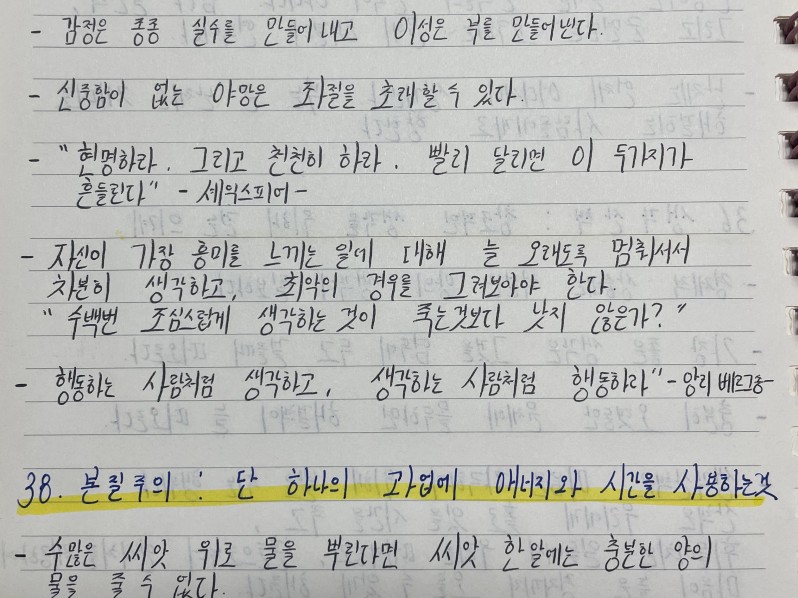 - 감정은 종종 실수를 만들어내고 이성은 부를 만들어낸다.
- 신중함이 없는 야망은 좌절을 초래할 수 있다.
- "현명하라. 그리고 천천히 하라. 빨리 달리면 이 두가지가
흔들린다" - 셰익스피어 -
- 자신이 가장 흥미를 느끼는 일에 대해 늘 오래도록 멈춰서서
차분히 생각하고, 최악의 경우를 그려보아야 한다.
" 수백번 조심스럽게 생각하는 것이 죽는것보다 낫지 않은가? "
- 행동하는 사람처럼 생각하고, 생각하는 사람처럼 행동하라" - 앙리 베르그송 -
38. 본질주의 : 단 하나의 과업에 에너지와 시간을 사용하는것
- 수많은 씨앗 위로 물을 뿌린다면 씨앗 한알에는 충분한 양의
물을 줄 수 없다.